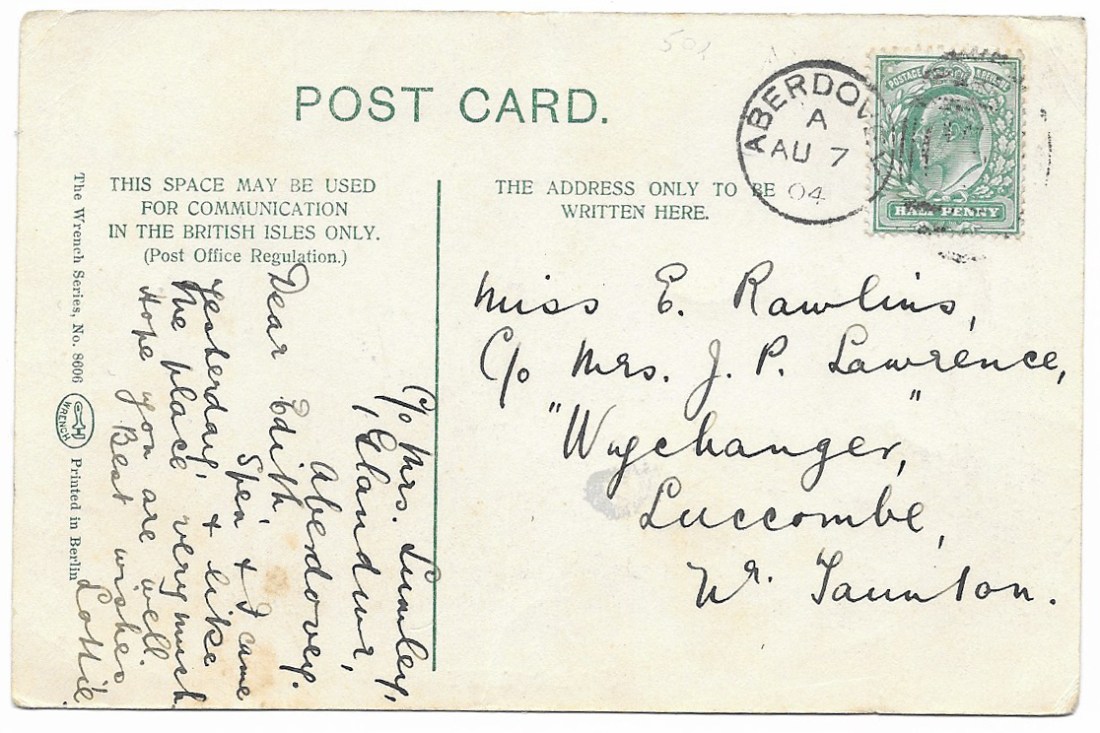 POST CARD.
ABERDOVEY
A
AU 7
04
POSTAGE
HALF PENNY
The Wrench Series, No. 8606
WRENCH
Printed in Berlin
THIS SPACE MAY BE USED
FOR COMMUNICATION
IN THE BRITISH ISLES ONLY.
(Post Office Regulation.)
THE ADDRESS ONLY TO BE
WRITTEN HERE.
C/o Mrs. Lumley,
1, Glandwr,
Aberdovey.
Dear Edith,
Spen & I came
yesterday, & like
the place very much
Hope you are well.
Best wishes
Lottie.
Miss E. Rawlins,
C/o Mrs. J. P. Lawrence,
"Wychanger,"
Luccombe,
Nr. Taunton.